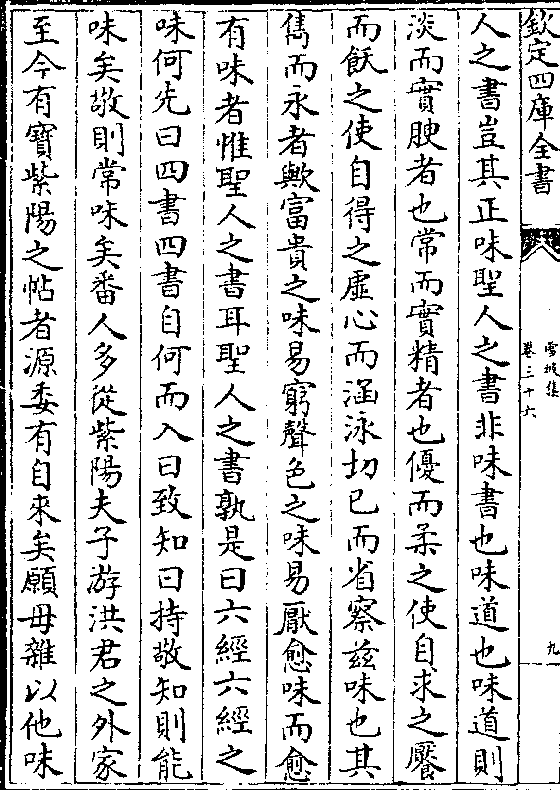 欽定四庫全書
雪坡集
卷三十六
九
人之書豈其正味聖人之書非味書也味道也味道則
淡而實腴者也常而實精者也優而柔之使自求之饜
而飫之使自得之虛心而涵泳切已而省察兹味也其
雋而永者歟富貴之味易窮聲色之味易厭愈味而愈
有味者惟聖人之書耳聖人之書孰是曰六經六經之
味何先曰四書四書自何而入曰致知曰持敬知則能
味矣敬則常味矣番人多從紫陽夫子游洪君之外家
至今有寶紫陽之帖者源委有自來矣願毋雜以他味